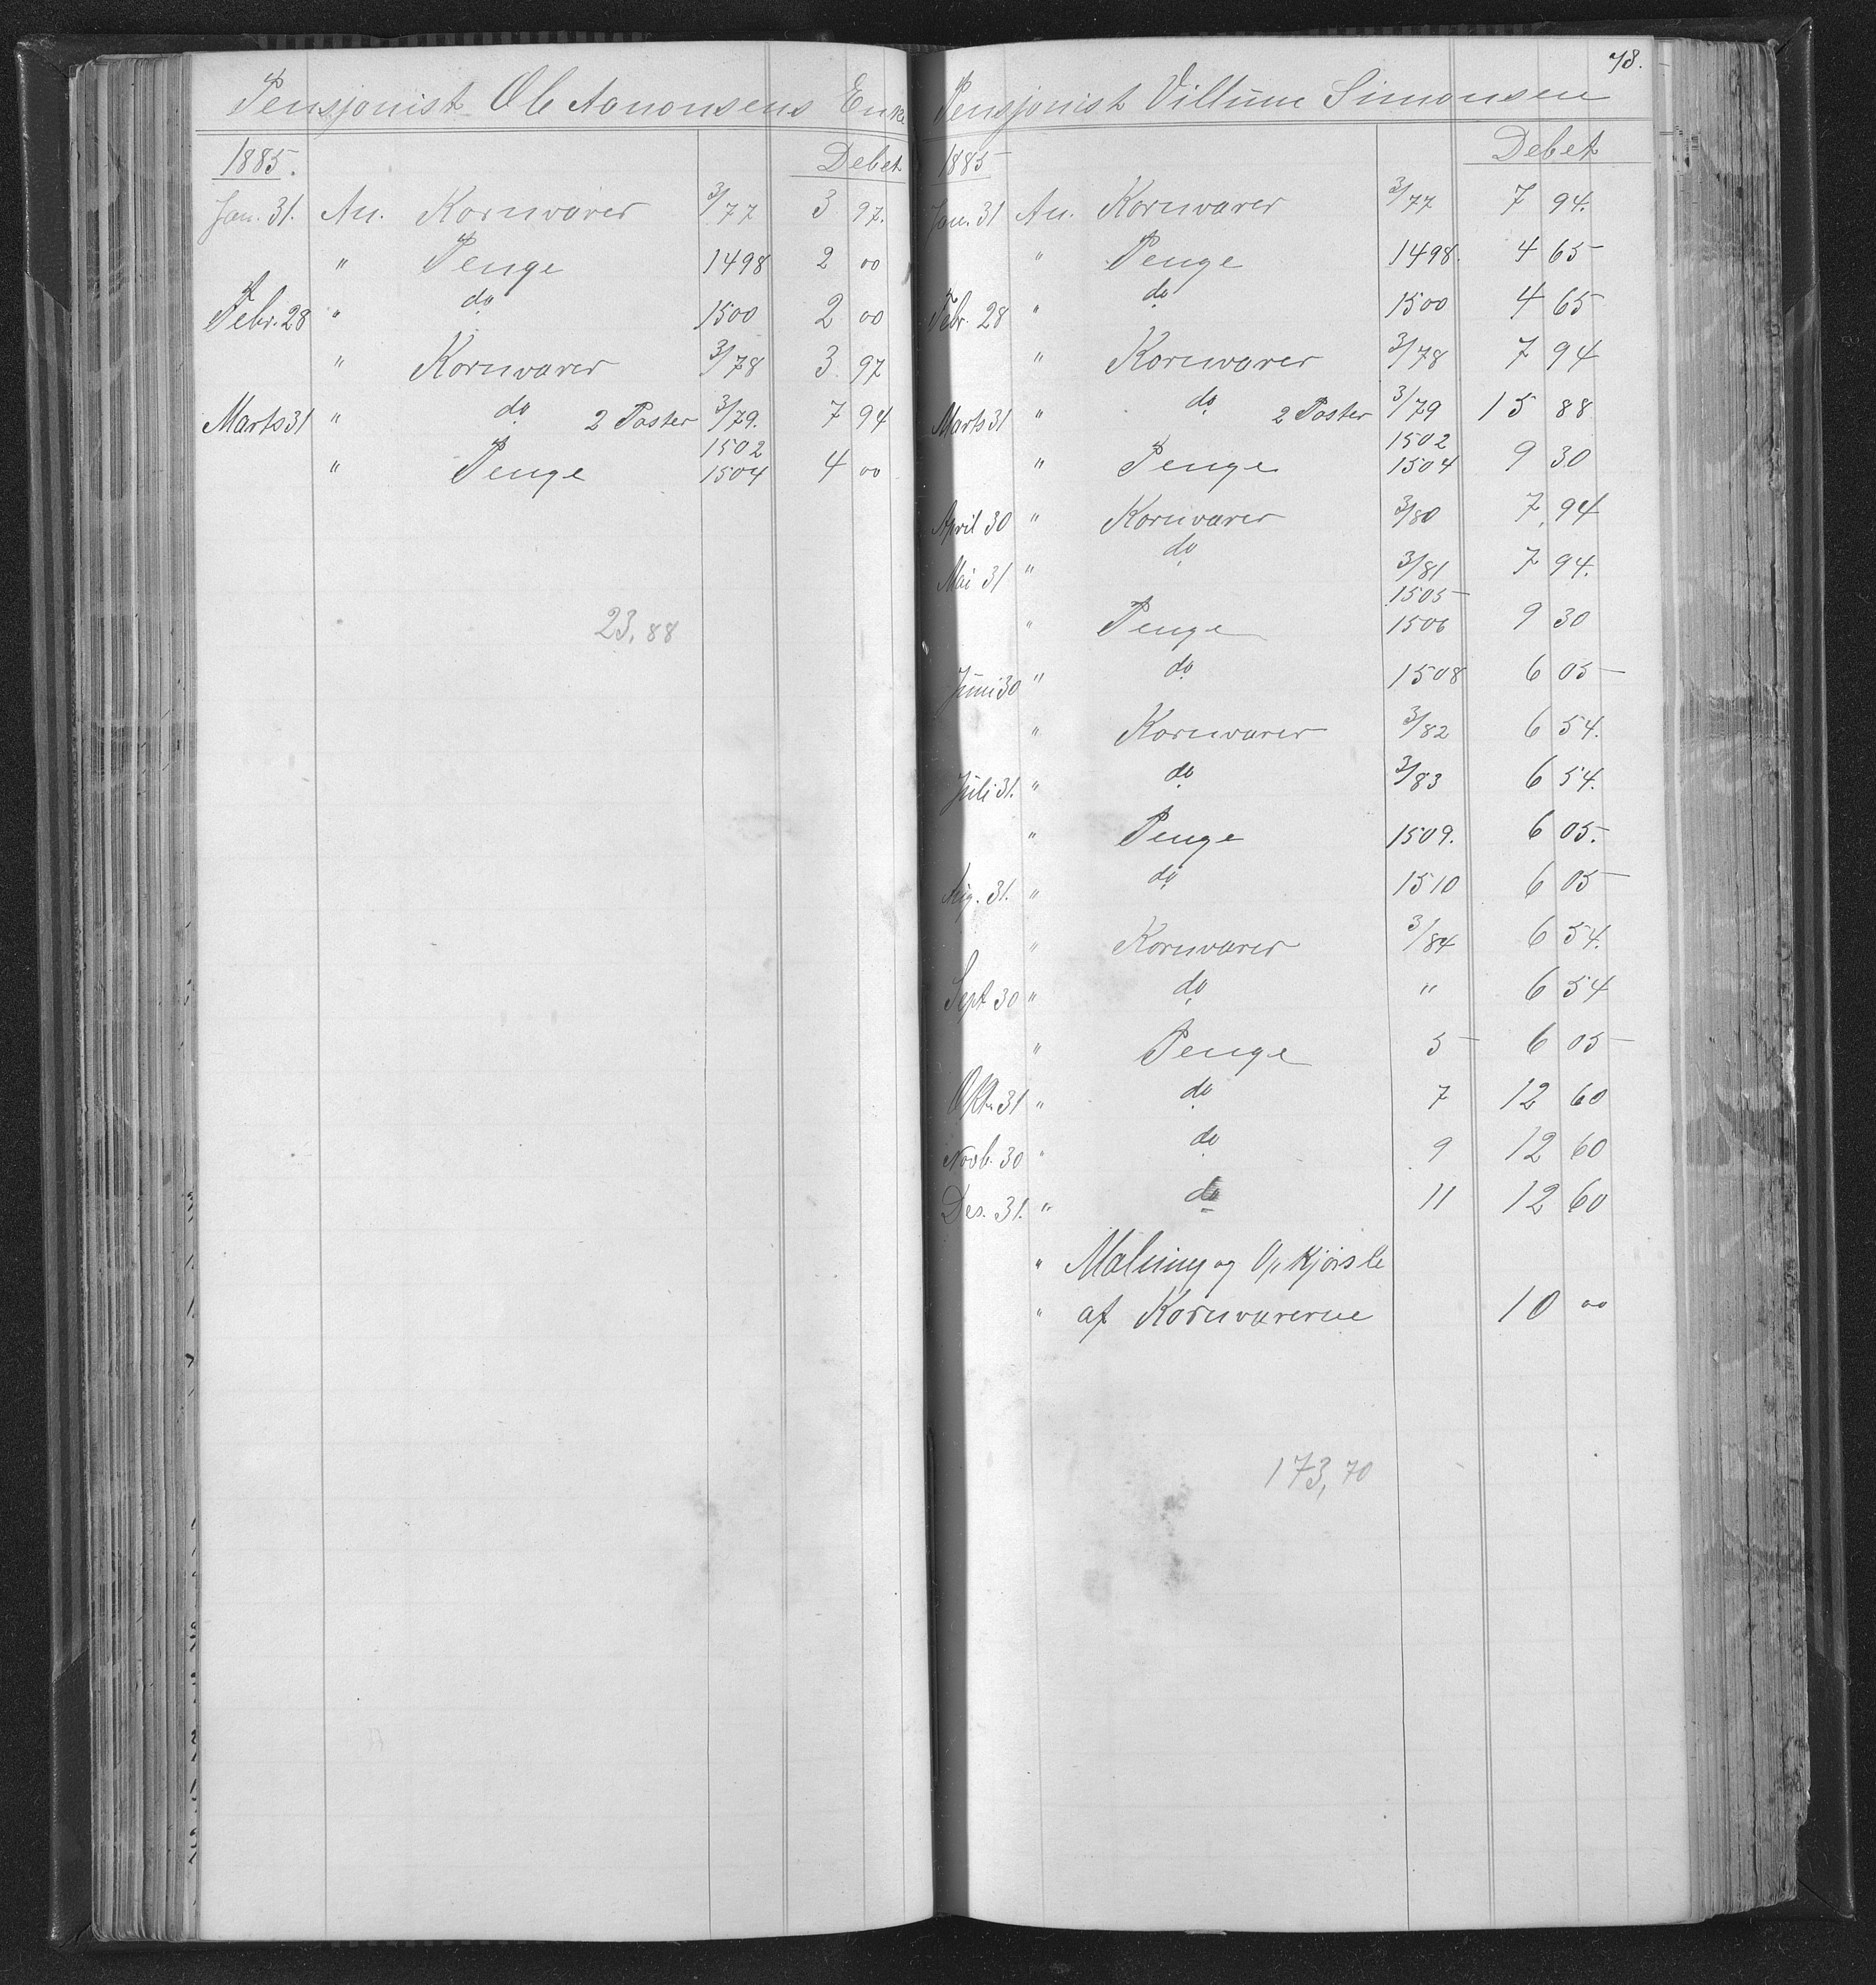 Pensjonist Ole Aanonsens Enke
1885. Debet
Jan. 31. An. Kornvarer 3/77 3 97.
" Penge 1498 2 00
Febr. 28 " do 1500 2 00
" Kornvarer 3/78 3 97
Marts 31 " do 2 Poster 3/79. 7 94
" Penge 1502 1504 4 00
23,88
78.
Pensjonist Villum Simonsen
1885 Debet
Jan. 31 An. Kornvarer 3/77 7 94.
" Penge 1498. 4 65
Febr. 28 " do 1500 4 65
" Kornvarer 3/78 7 94
Marts 31 " do 2 Poster 3/79 15 88
" Penge 1502 1504 9 30
April 30 " Kornvarer 3/80 7 94
Mai 31 " do 3/81 7 94.
" Penge 1505 1506 9 30
Juni 30 " do 1508 6 05
" Kornvarer 3/82 6 54.
Juli 31. " do 3/83 6 54.
" Penge 1509. 6 05.
Aug. 31. " do 1510 6 05
" Kornvarer 3/84 6 54.
Sept 30 " do " 6 54
" Penge 5 6 05
Okt. 31 " do 7 12 60
Novb. 30 " do 9 12 60
Des. 31. " do 11 12 60
" Malning og Opkjørsle
" af Kornvarerne 10 00
173,70